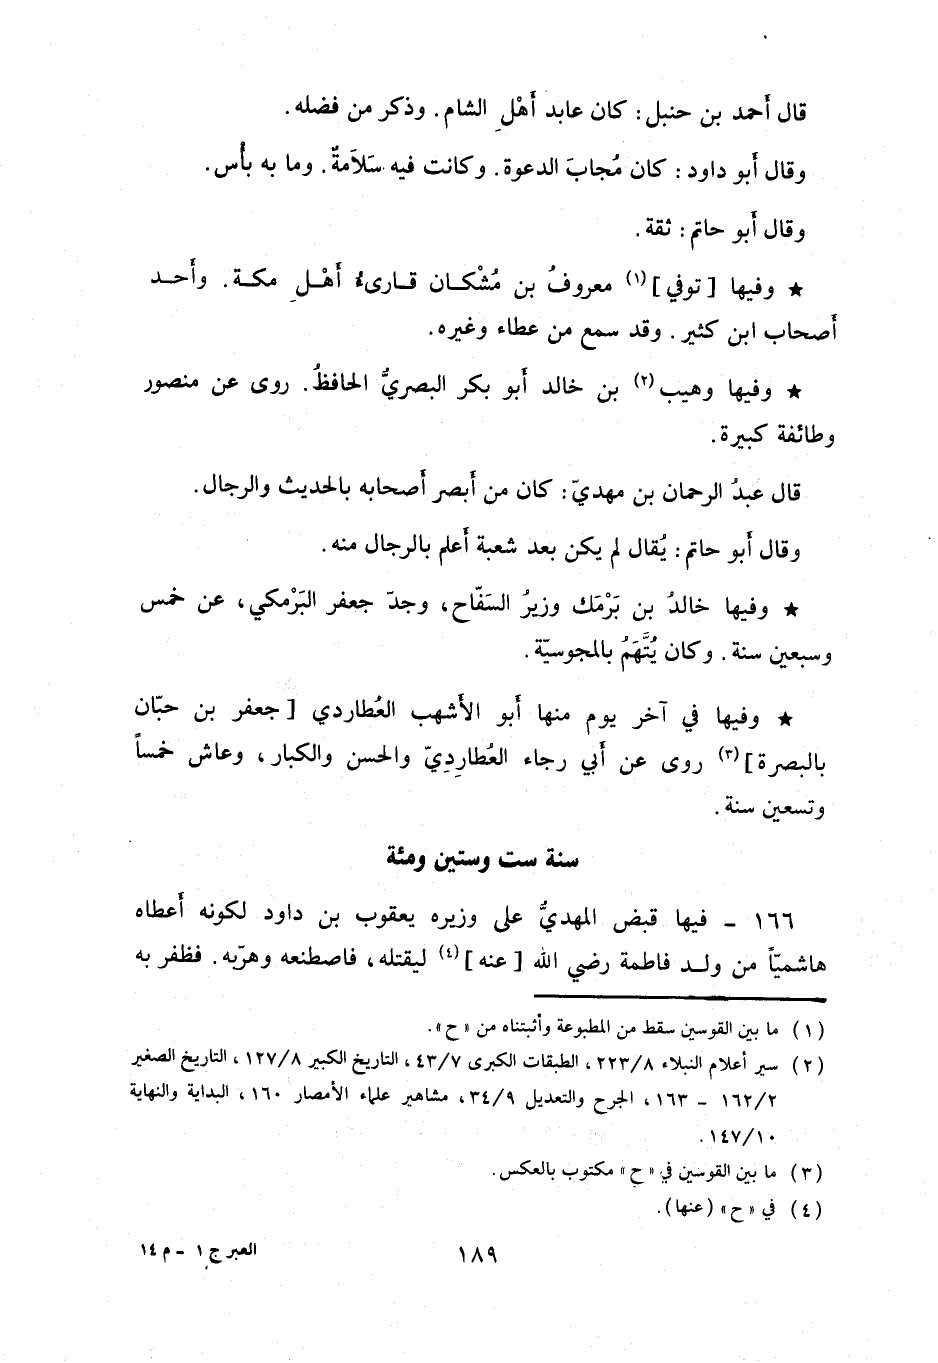 قال أَحمد بن حنبل: كان عابد أَهْلِ الشام. وذكر من فضله.
وقال أَبو داود: كان مُجابَ الدعوة. وكانت فيه سَلاَمةٌ. وما به بأْس.
وقال أَبو حاتم: ثقة.
★ وفيها [توفي] (١) معروفُ بن مُشْكان قارىءُ أَهْلِ مكة. وأَحد
أَصحاب ابن كثير. وقد سمع من عطاء وغيره.
★ وفيها وهيب (٢) بن خالد أَبو بكر البصريُّ الحافظُ. روى عن منصور
وطائفة كبيرة.
قال عبدُ الرحمان بن مهديّ: كان من أَبصر أَصحابه بالحديث والرجال.
وقال أَبو حاتم: يُقال لم يكن بعد شعبة أَعلم بالرجال منه.
★ وفيها خالدُ بن بَرْمَك وزيرُ السَفّاح، وجدّ جعفر البَرْمكي، عن خمس
وسبعين سنة. وكان يُتَّهَمُ بالمجوسيّة.
★ وفيها في آخر يوم منها أَبو الأَشهب العُطاردي [جعفر بن حبّان
بالبصرة] (٣) روى عن أَبي رجاء العُطارِديّ والحسن والكبار، وعاش خمساً
وتسعين سنة.
سنة ست وستين ومئة
١٦٦ - فيها قبض المهديُّ على وزيره يعقوب بن داود لكونه أَعطاه
هاشميّاً من ولد فاطمة رضي الله [عنه] (٤) ليقتله، فاصطنعه وهرّبه. فظفر به
(١) ما بين القوسين سقط من المطبوعة وأثبتناه من «ح».
(٢) سير أعلام النبلاء ٢٢٣/٨، الطبقات الكبرى ٤٣/٧، التاريخ الكبير ١٢٧/٨، التاريخ الصغير
١٦٢/٢ - ١٦٣، الجرح والتعديل ٣٤/٩، مشاهير علماء الأمصار ١٦٠، البداية والنهاية
١٤٧/١٠.
(٣) ما بين القوسين في «ح» مكتوب بالعكس.
(٤) في «ح» (عنها).
١٨٩
العبر ج ١ - م ١٤